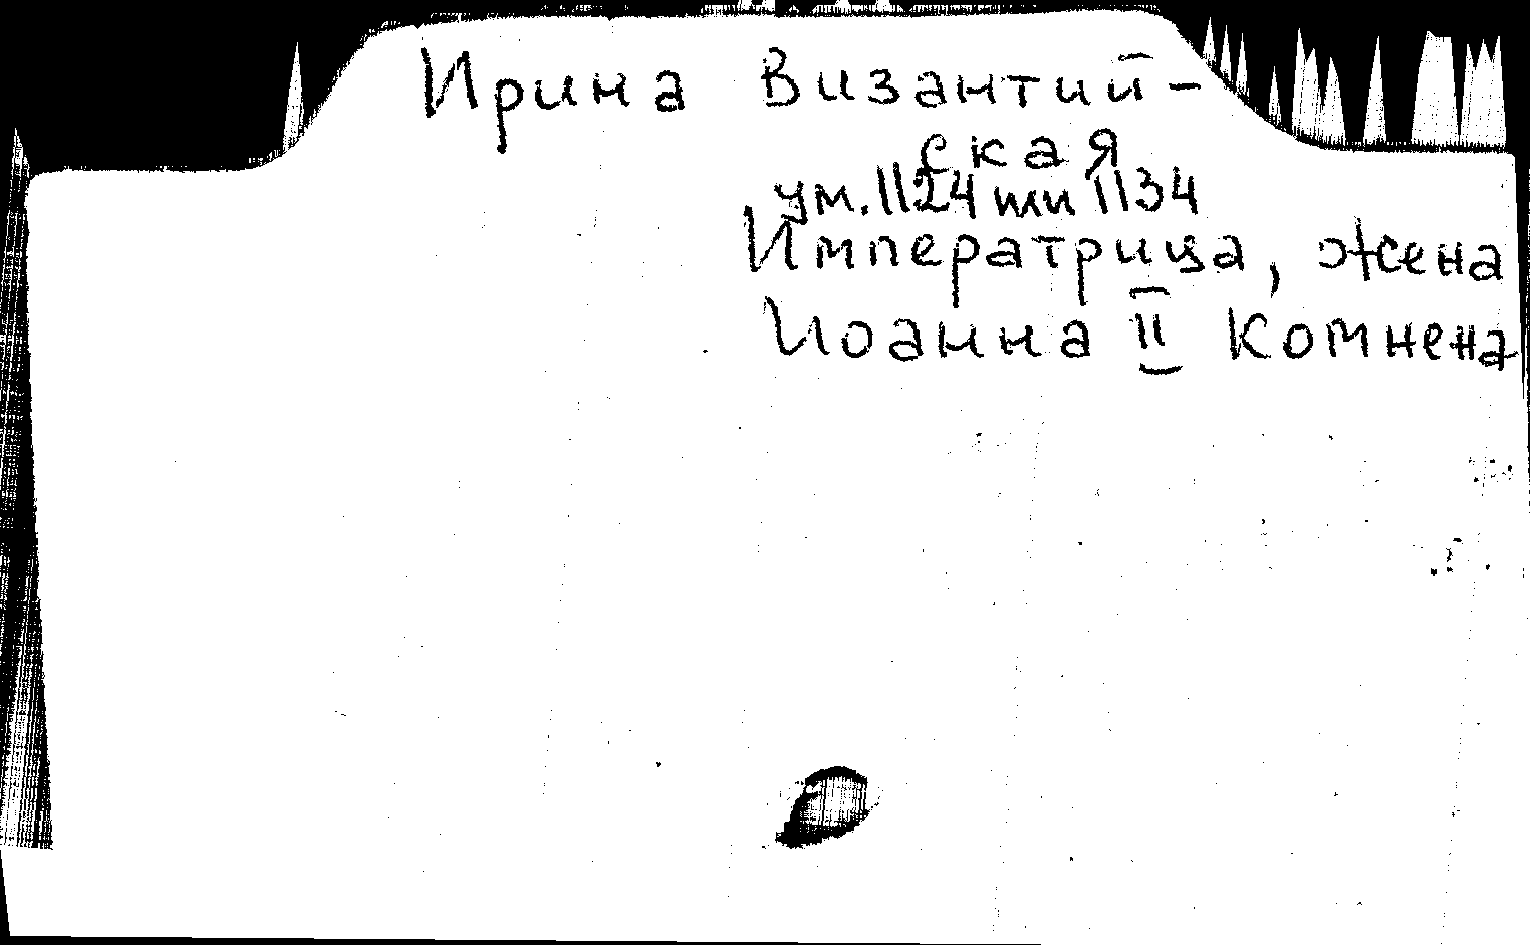 Ирина Византий-
ская
ум. 1124 или 1134
Императрица, жена
Иоанна II Комнена